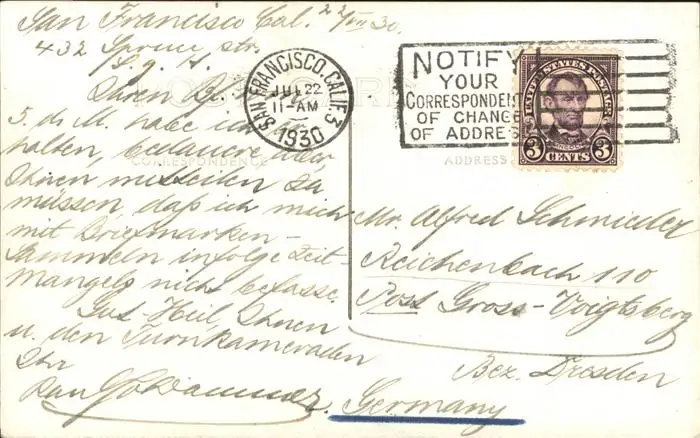 San Francisco Cal. 22/VII 30.
432 Spruce str.
Ihren Br.
5. ds M. habe ich
halten, bedauere aber,
Ihnen mitteilen zu
müssen, daß ich mich
mit Briefmarken-
sammeln infolge Zeit-
mangels nicht befasse.
Gut-Heil, Ihnen
u. den Turnkameraden
Ihr
CORRESPONDENCE
SAN FRANCISCO, CALIF. 3
JUL 22
11-AM
1930
NOTIFY
YOUR
CORRESPONDENT
OF CHANGE
OF ADDRES
UNITED STATES POSTAGE
LINCOLN
3 CENTS 3
ADDRESS
Mr. Alfred Schmieder
Reichenbach 110
Post Gross-Voigtsberg
Bez. Dresden
Germany